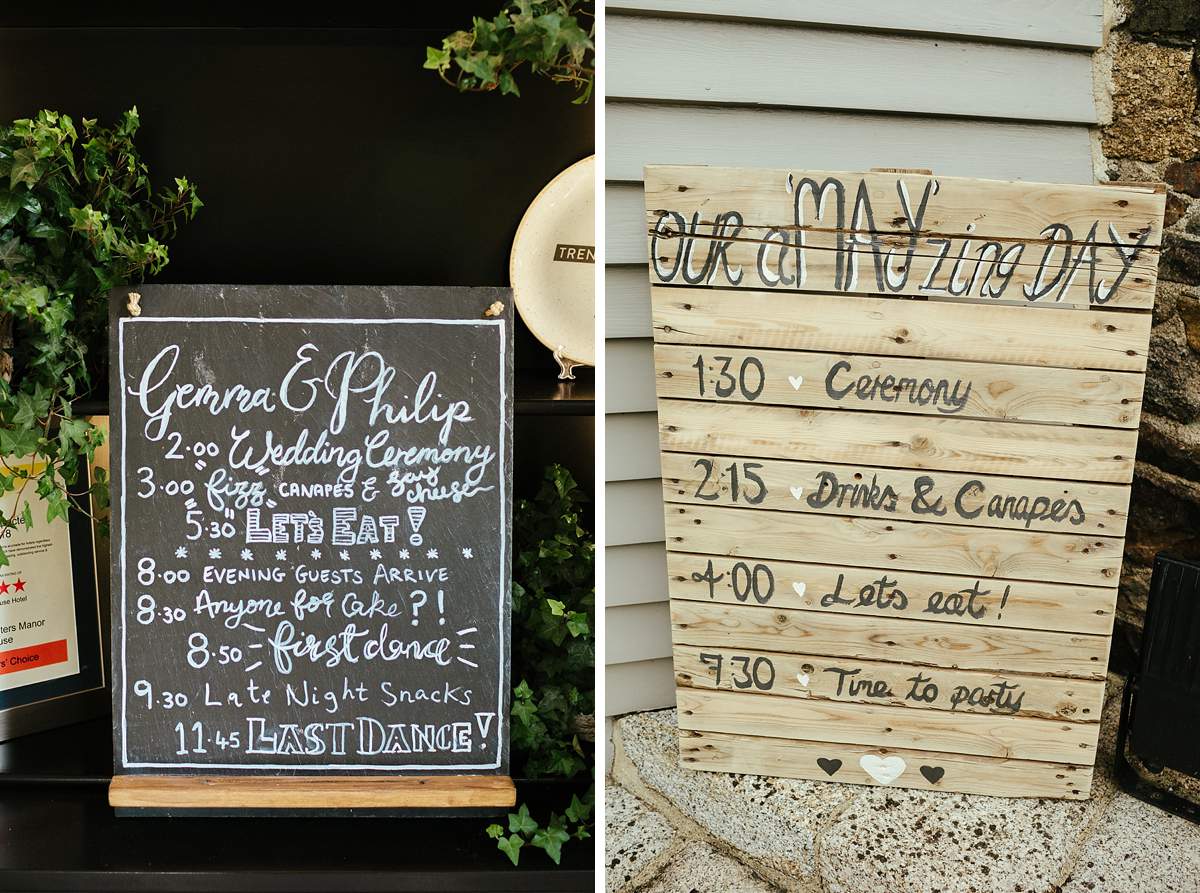 Gemma & Philip
2.00 Wedding Ceremony
3.00 fizz CANAPES & say cheese
5.30 LET'S EAT!
8.00 EVENING GUESTS ARRIVE
8.30 Anyone for Cake?!
8.50 first dance
9.30 Late Night Snacks
11.45 LAST DANCE!
TREN
18
Hotel
ters Manor
use
rs' Choice
OUR a'MAY'zing DAY
1:30 Ceremony
2:15 Drinks & Canapés
4:00 Lets eat!
7:30 Time to party